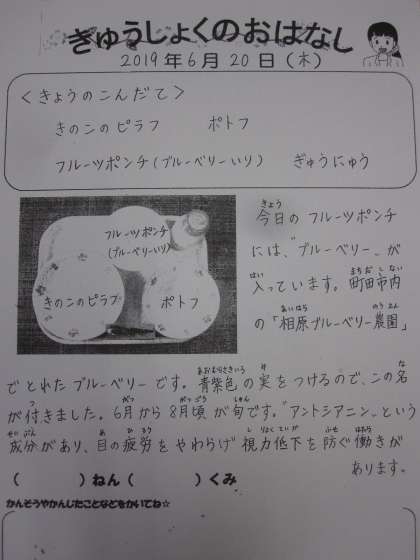 きゅうしょくのおはなし
2019年6月20日(木)
<きょうのこんだて>
きのこのピラフ ポトフ
フルーツポンチ(ブルーベリーいり) ぎゅうにゅう
フルーツポンチ
(ブルーベリーいり)
きのこのピラフ ポトフ
今日のフルーツポンチ
には、"ブルーベリー"が
入っています。町田市内
の「相原ブルーベリー農園」
でとれたブルーベリーです。青紫色の実をつけるので、この名
が付きました。6月から8月頃が旬です。"アントシアニン"という
成分があり、目の疲労をやわらげ視力低下を防ぐ働きが
あります。
( )ねん( )くみ
かんそうやかんじたことなどをかいてね☆